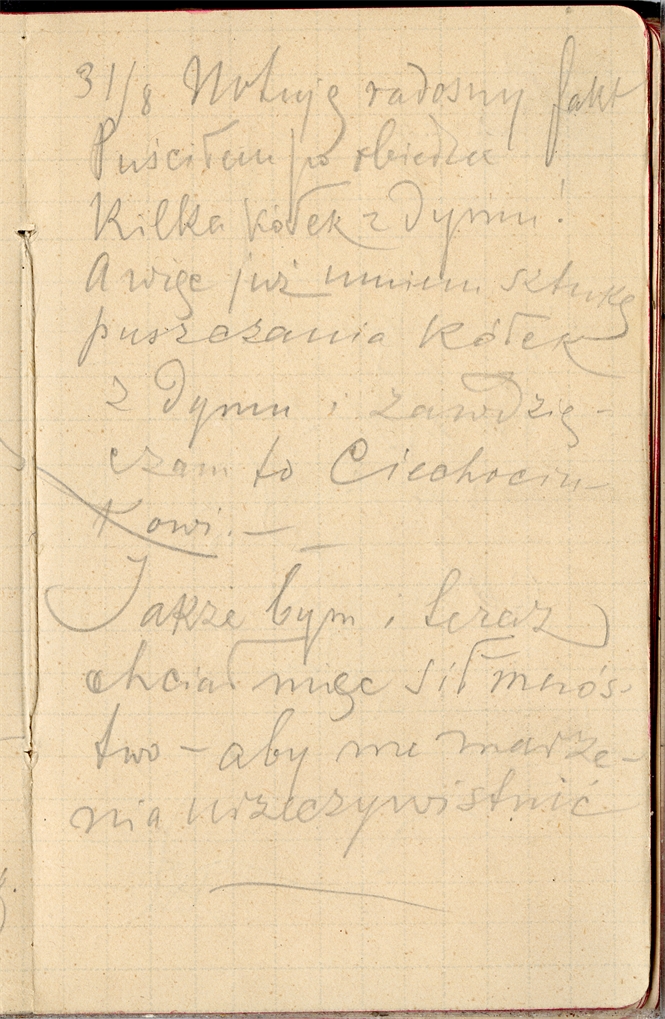 31/8. Notuję radosny fakt
Puściłem po obiedzie
Kilka kółek z dymu!
A więc już umiem sztukę
puszczania kółek
z dymu i zawdzię-
czam to Ciechocin-
kowi. —
Jakże bym i teraz
chciał mieć sił mnós-
two — aby me marze-
nia urzeczywistnić